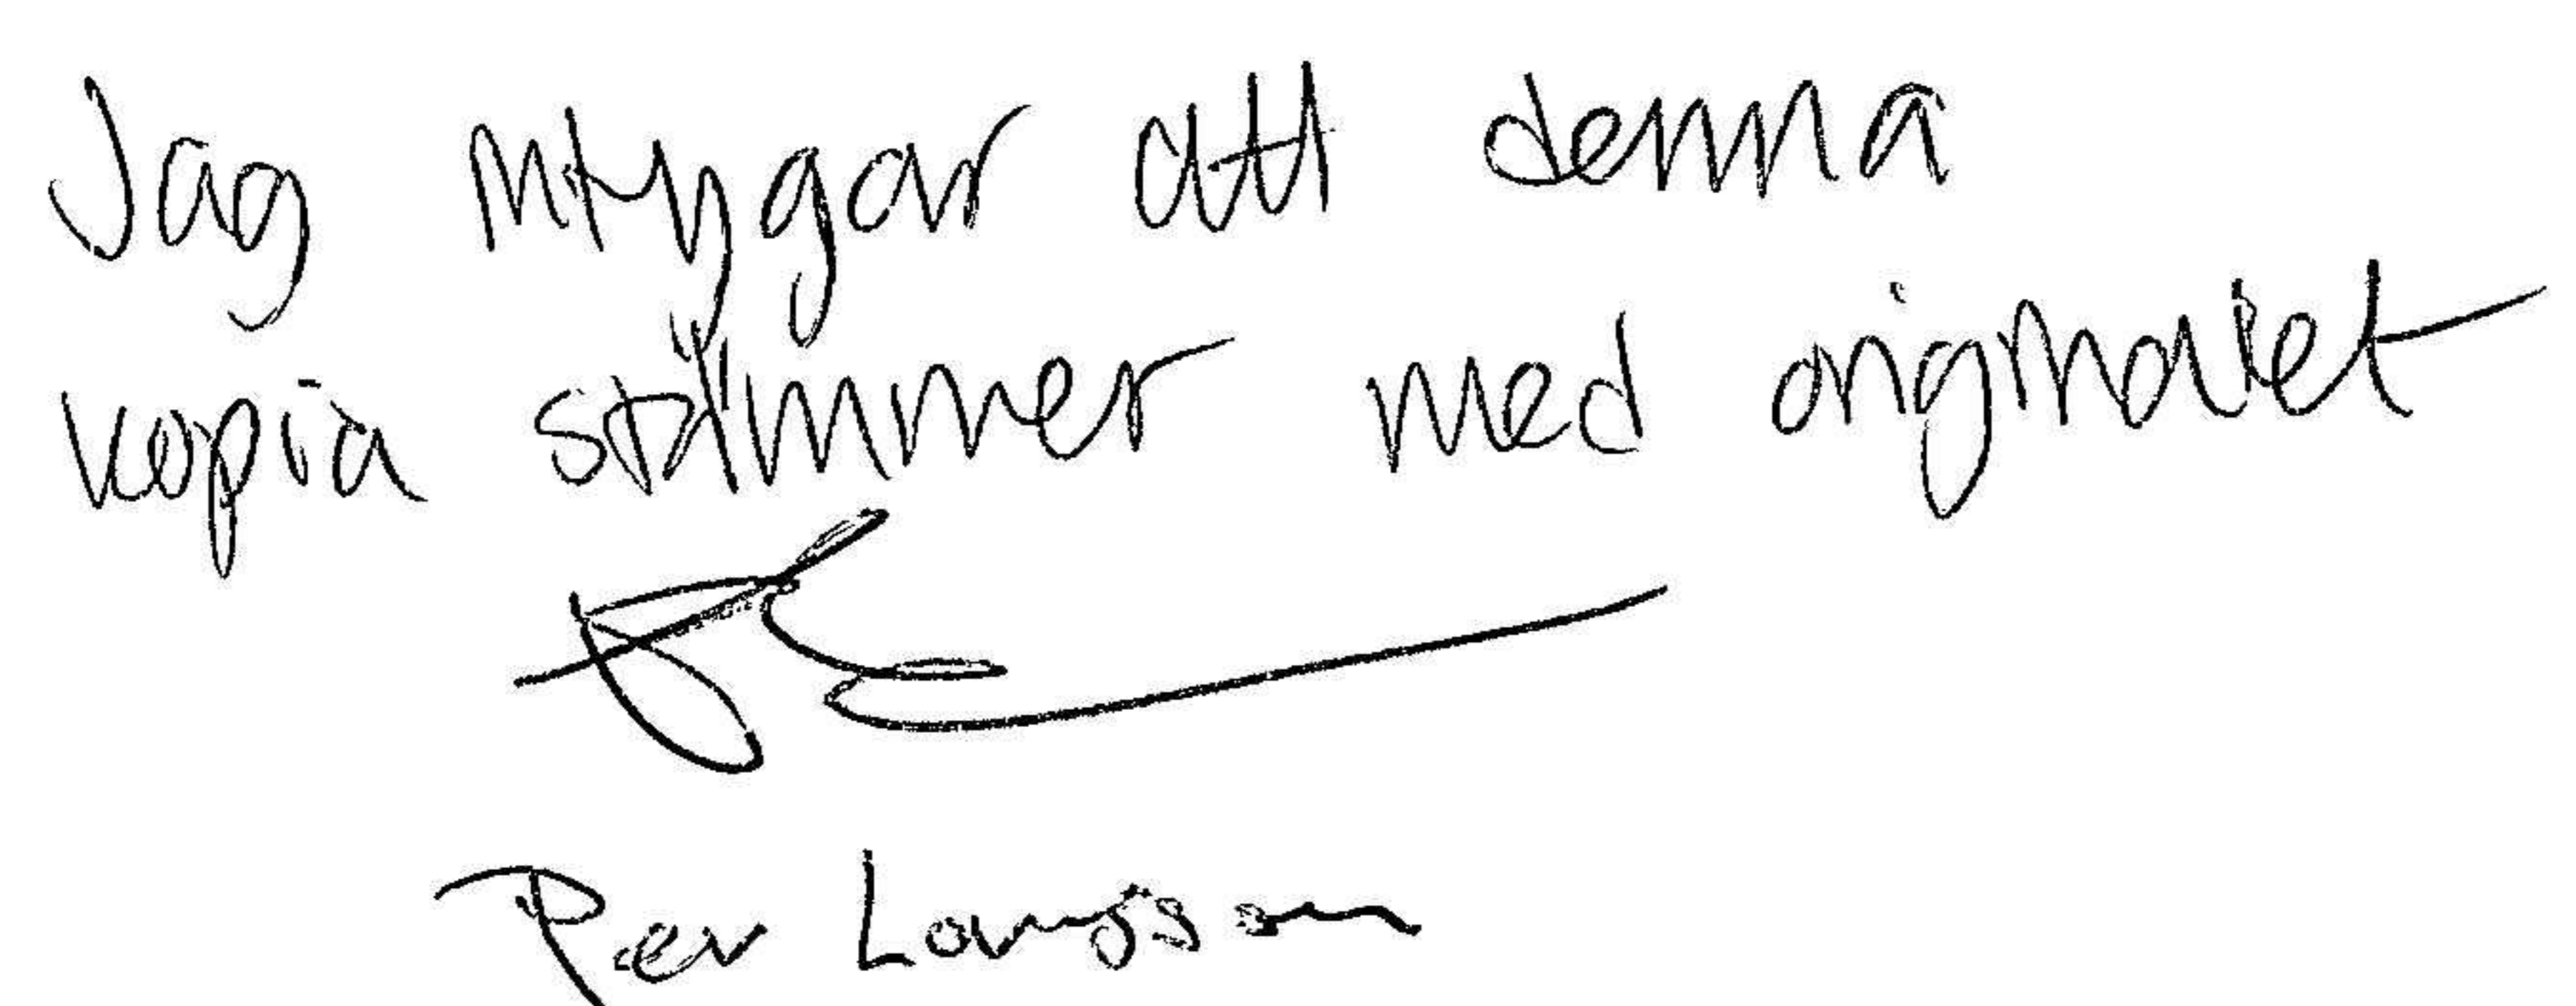 Jag intygar att denna
kopia stämmer med originalet
Per